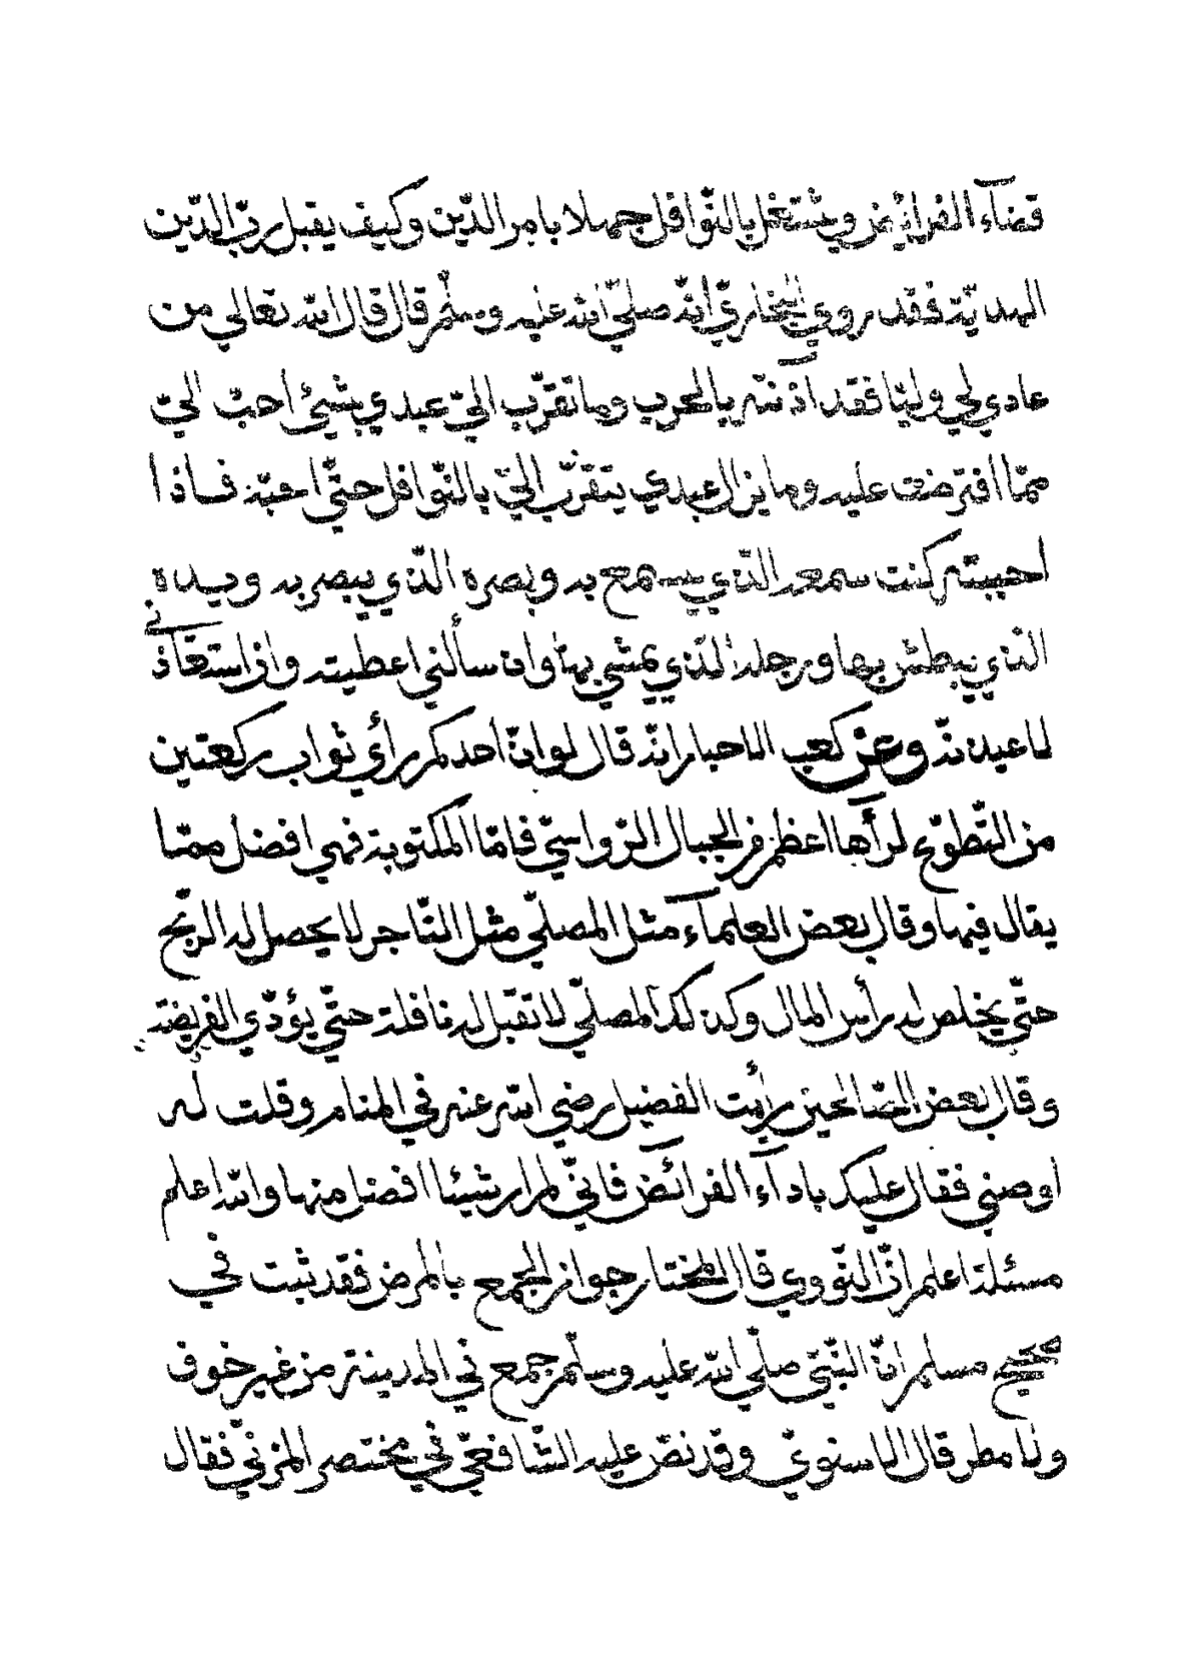 قضآء الفرائض ويشتغل بالنّوافل جهلا بامر الدّين وكيف يقبل ربّ الدّين
الهديّة فقد روي البخاريّ انّه صلّي الله عليه وسلّم قال قال الله تعالي من
عادي لي وليّا فقد آذنته بالحرب وما تقرّب اليّ عبدي بشيئ احبّ اليّ
ممّا افترضت عليه وما يزال عبدي يتقرّب اليّ بالنّوافل حتّي احبّه فاذا
احببته كنت سمعه الّذي يسمع به وبصره الّذي يبصر به ويده
الّذي يبطش بها ورجله الّذي يمشي بها وان سألني اعطيته واذا استعاذني
لاعيذنّه وعن كعب الاحبار انّه قال لو انّ احدكم رأي ثواب ركعتين
من التّطوّع لرآها اعظم من الجبال الرّواسي فامّا المكتوبة فهي افضل ممّا
يقال فيها وقال بعض العلمآء مثل المصلّي مثل التّاجر لا يحصل له الرّبح
حتّي يخلص له رأس المال وكذلك المصلّي لا تقبل له نافلة حتّي يؤدّي الفريضة
وقال بعض الصّالحين رأيت الفضيل رضي الله عنه في المنام وقلت له
اوصني فقال عليك باداء الفرآئض فانّي لم ار شيئا افضل منها والله اعلم
مسئلة اعلم انّ النّووي قال المختار جواز الجمع بالمرض فقد ثبت في
صحيح مسلم انّ النّبيّ صلّي الله عليه وسلّم جمع في المدينة من غير خوف
ولا مطر قال الاسنويّ وقد نصّ عليه الشّافعيّ في مختصر المزنيّ فقال